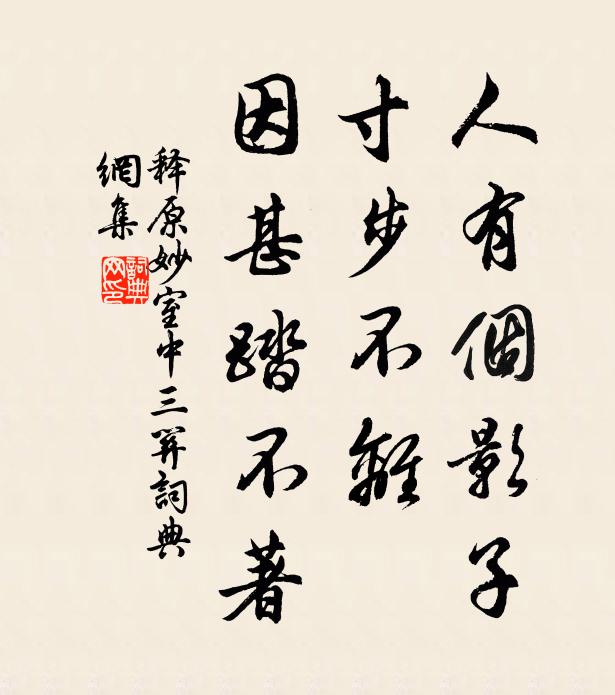 人有個影子
寸步不離
因甚踏不著
释原妙室中三关詞典
網集
詞典網印